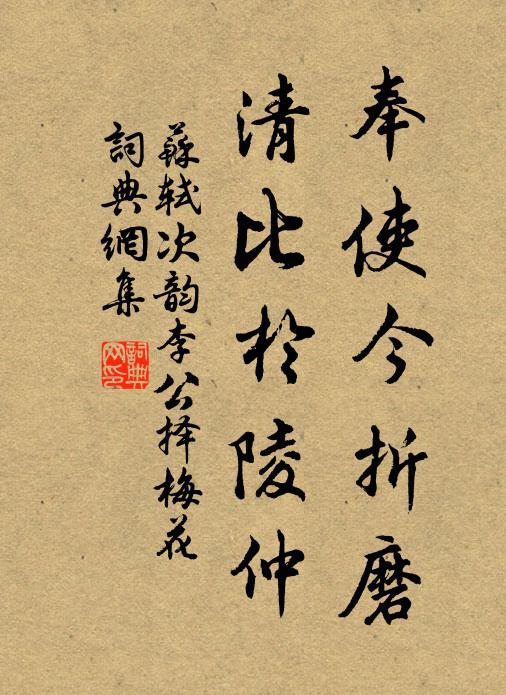 奉使今折磨
清比於陵仲
蘇軾次韵李公择梅花
詞典網集
詞典网印